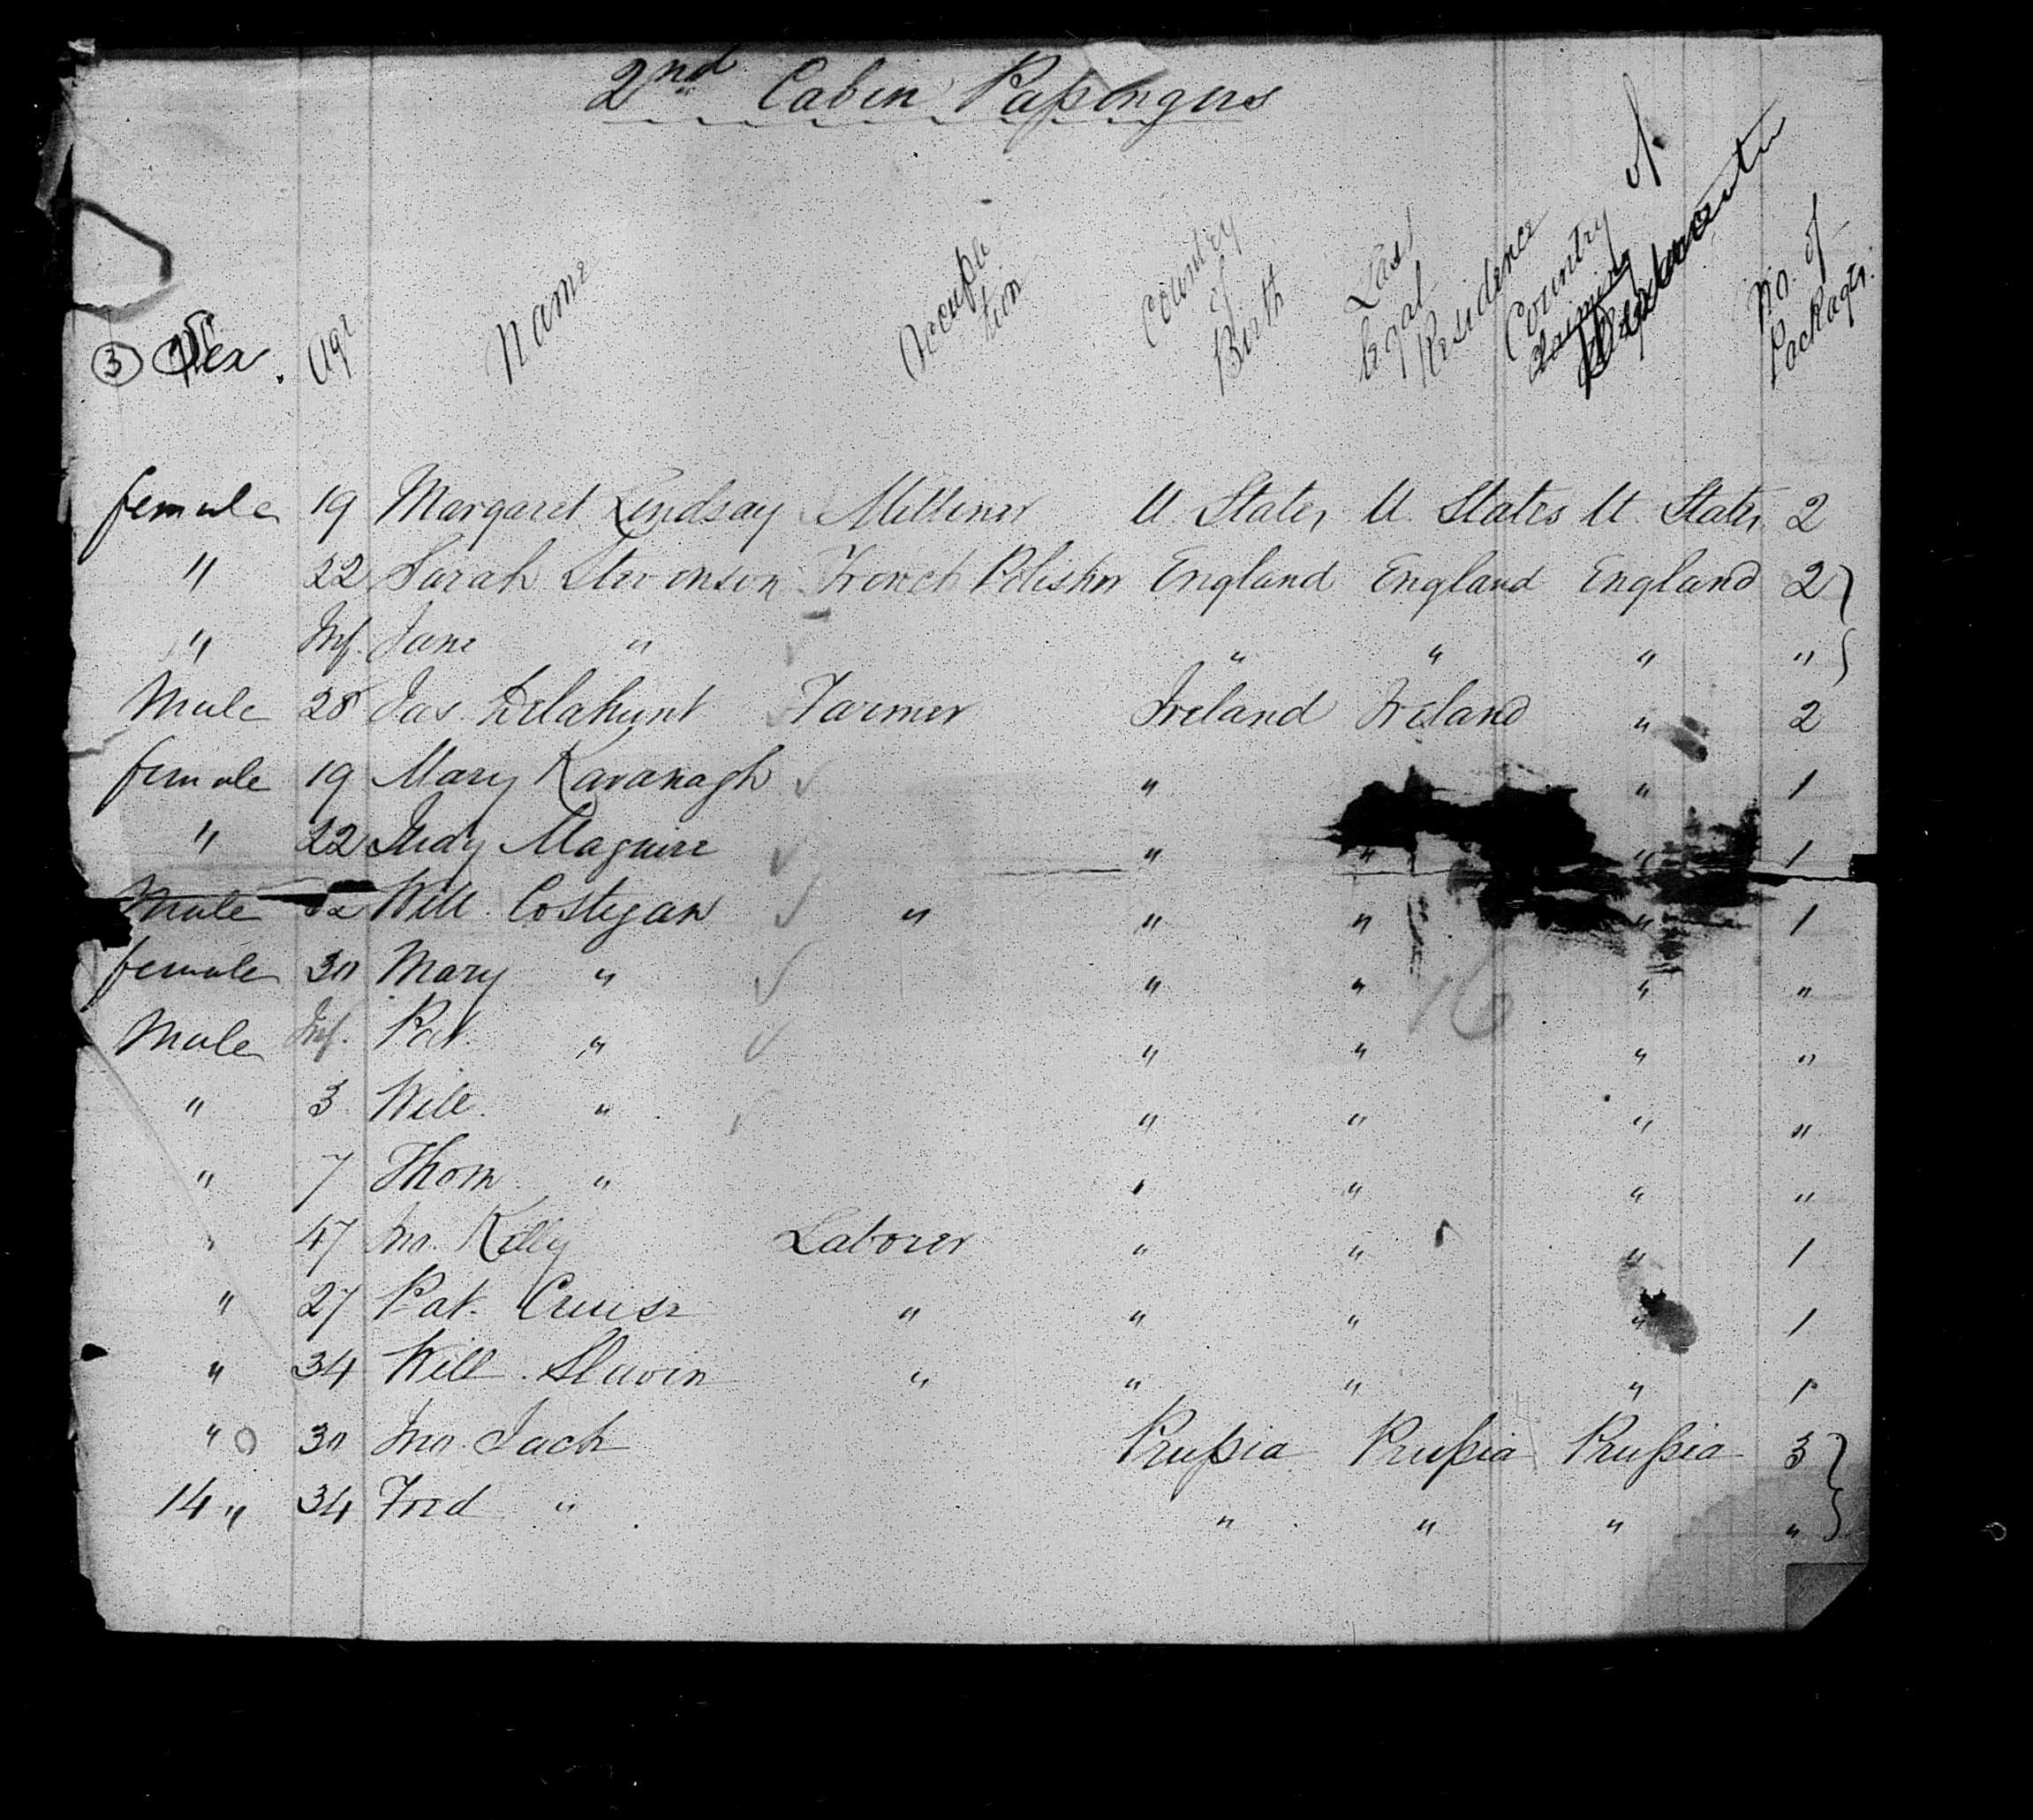 2nd Cabin Passengers
③ Sex. Age Name Occupation Country of Birth Last legal Residence Country of No. of Packages.
female 19 Margaret Lindsay Milliner U. States U. States U. States 2
" 22 Sarah Stevenson French Polisher England England England 2
" Inf. Jane " " " " "
Male 28 Jas Delahunt Farmer Ireland Ireland " 2
female 19 Mary Kavanagh " " 1
" 22 Judy Maguire " " " 1
Male Will. Costegan " " " " 1
female 30 Mary " " " " "
Male Inf. Pat. " " " " "
" 3 Will. " " " " "
" 7 Thom " " " "
" 47 Jno. Kelly Laborer " " " 1
" 27 Pat. Cruise " " " " 1
" 34 Will. Slavin " " " " 1
" 30 Jno. Jach Prussia Prussia Prussia 3
14 " 34 Fred " " " " "
16